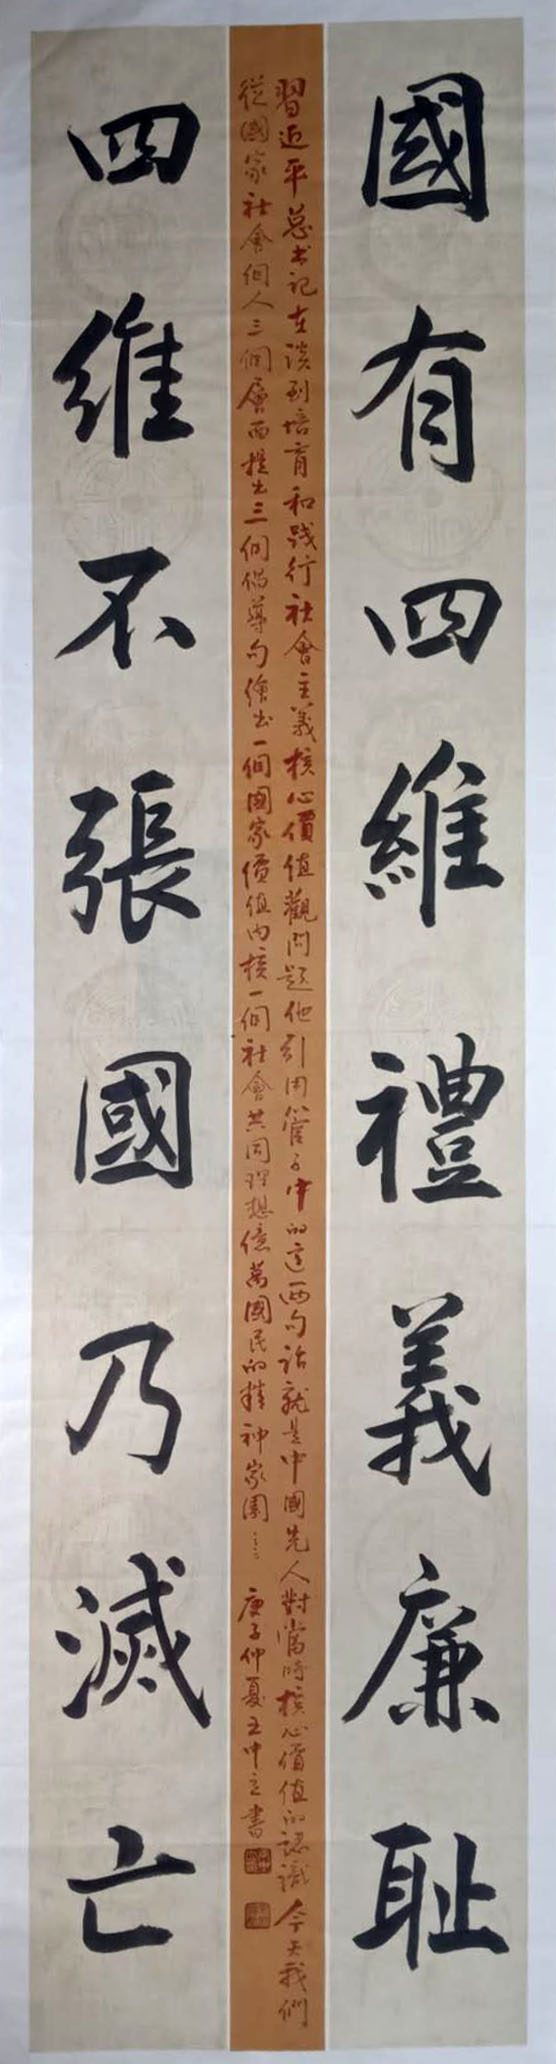 國有四維禮義廉耻
習近平总书记在談到培育和践行社會主義核心價值觀问题他引用管子中的這兩句話就是中國先人對當時核心價值的認識今天我們
從國家社會個人三個層面提出三個倡導勾繪出一個國家價值內核一個社會共同理想億萬國民的精神家園……庚子仲夏王中立書
四維不張國乃滅亡